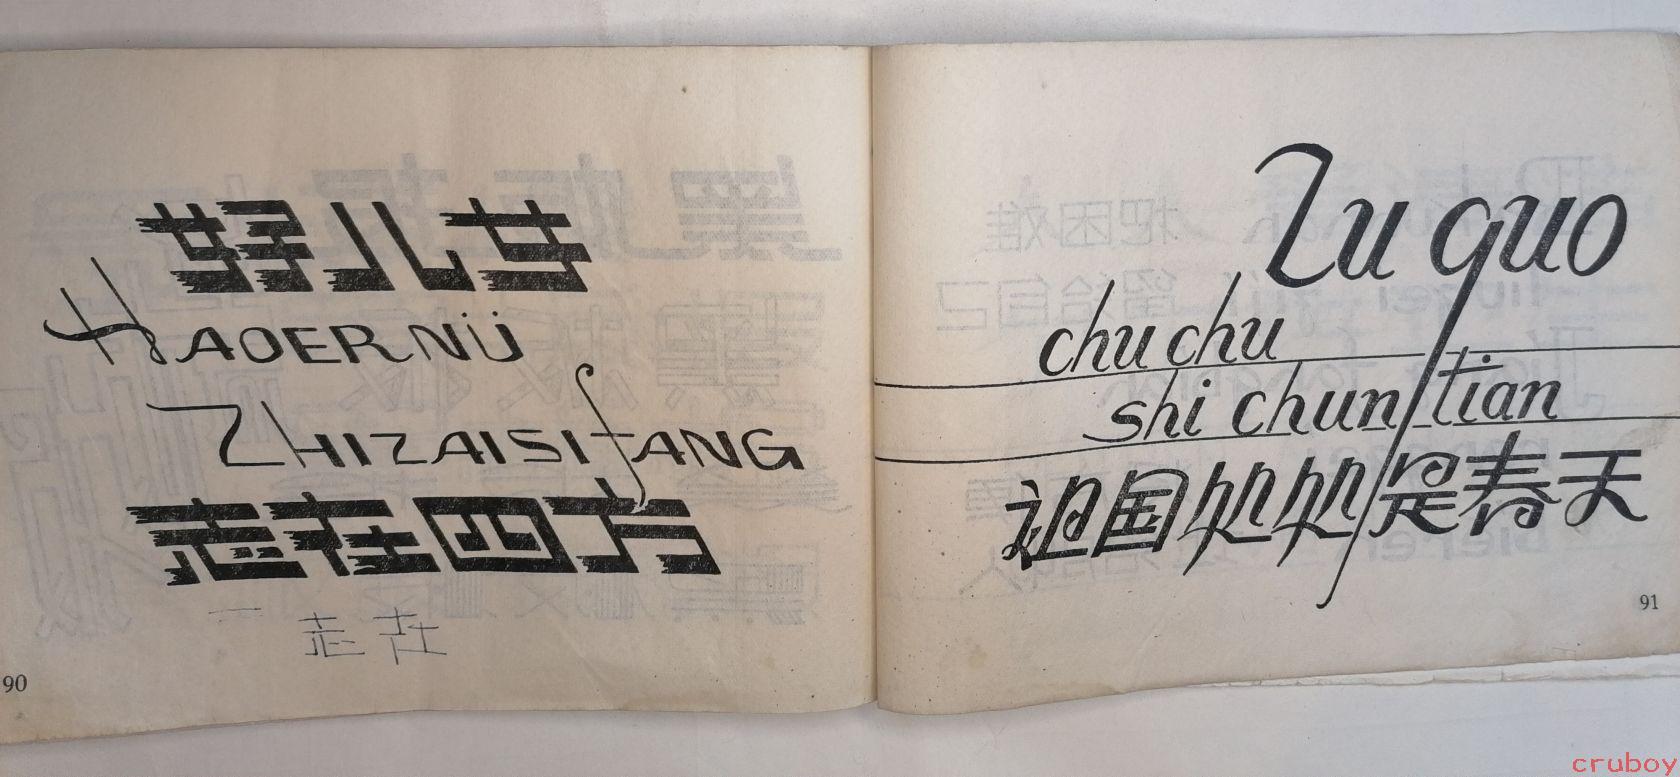 好儿女
HAOER NÜ
ZHIZAISIFANG
志在四方
志在
90
Zu guo
chu chu
shi chun tian
祖国处处是春天
91
cruboy